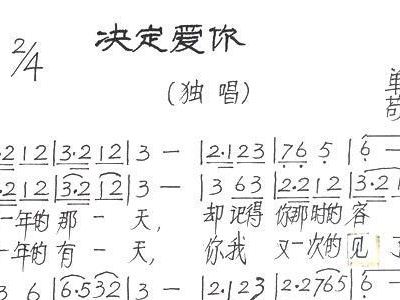 决定爱你
2/4
(独唱)
·2 1 2 | 3·2 1 2 | 3 — | 2·1 2 3 | 7 6 5 | 6 —
·2 1 2 | 3·2 1 2 | 3 — | 3 6 3 | 2·2 1 2 | 3·2 1
一年的那一天, 却记得你那时的容
一年的有一天, 你我又一次的见
3 6 | 6·5 3 2 | 3 — | 2·1 2 3 | 2·2 7 6 5 | 6